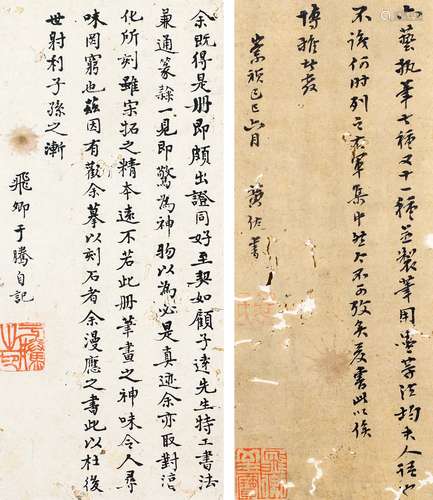 六藝執筆七種又十一種並製筆用墨等法均夫人語
不識何時列之右軍集中
然亦不可攷矣爰書此以俟
博雅者考
崇禎己巳六月
余既得是冊即頗出證同好至契如顧子遠先生特工書法
兼通篆隸一見即驚為神物以為必是真迹余亦取對淳
化所刻雖宋拓之精本遠不若此冊筆畫之神味令人尋
味罔窮也茲因有勸余摹以刻石者余漫應之書此以杜後
世射利子孫之漸
飛卿于騰自記